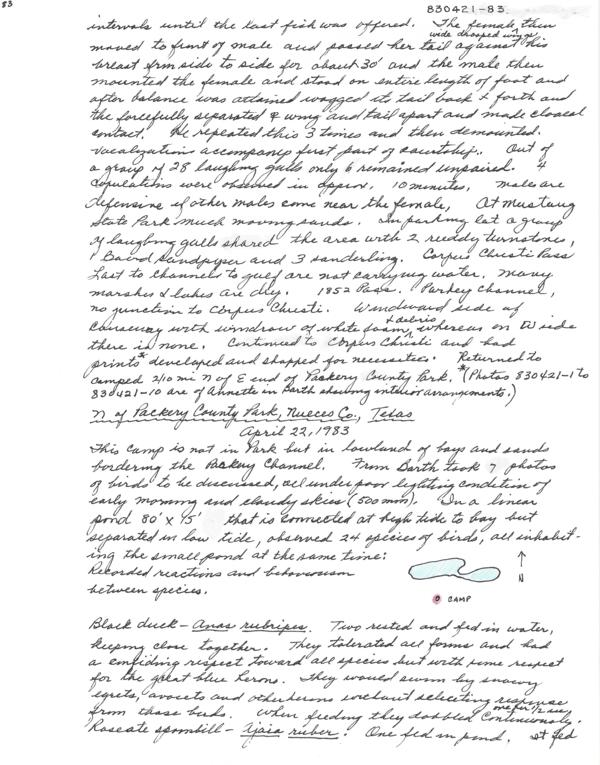 83
830421-83
intervals until the last fish was offered. The female then
wide drooped wings
moved to front of male and passed her tail against his
breast from side to side for about 30" and the male then
mounted the female and stood on entire length of foot and
after balance was attained wagged its tail back & forth and
the forcefully separated ♀ wing and tail apart and made cloacal
contact. He repeated this 3 times and then demounted.
Vocalization accompanies first part of courtship. Out of
a group of 28 laughing gulls only 6 remained unpaired. 4
copulations were observed in approx. 10 minutes. Males are
defensive if other males come near the female. At Mustang
State Park much moving sands. In parking lot a group
of laughing gulls shared the area with 2 ruddy turnstones,
1 Baird Sandpiper and 3 sanderling. Corpus Christi Pass
Last to channels to gulf are not carrying water. Many
marshes & lakes are dry. 1852 Pass. Packey Channel,
no junction to Corpus Christi. Windward side of
& debris
causeway with windrow of white foam, whereas on W side
there is none. Continued to Corpus Christi and had
prints* developed and shopped for necessities. Returned to
camped 2/10 mi N of E end of Packery County Park. *(Photos 830421-1 to
830421-10 are of Annette in Darth showing interior arrangements.)
N of Packery County Park, Nueces Co., Texas
April 22, 1983
This camp is not in Park but in lowland of bays and sands
bordering the Packery Channel. From Darth took 7 photos
of birds to be discussed, all under poor lighting condition of
early morning and cloudy skies (500mm). In a linear
pond 80' x 15' that is connected at high tide to bay but
separated in low tide, observed 24 species of birds, all inhabit-
ing the small pond at the same time:
Recorded reactions and behaviorism
between species.
N
CAMP
Black duck - Anas rubripes. Two rested and fed in water,
keeping close together. They tolerated all forms and had
a confiding respect toward all species but with some respect
for the great blue herons. They would swim by snowy
egrets, avocets and other herons without soliciting response
one per 1/2 sec
from those birds. When feeding they dabbled continuously.
Roseate spoonbill - Ajaia ruber. One fed in pond. It fed